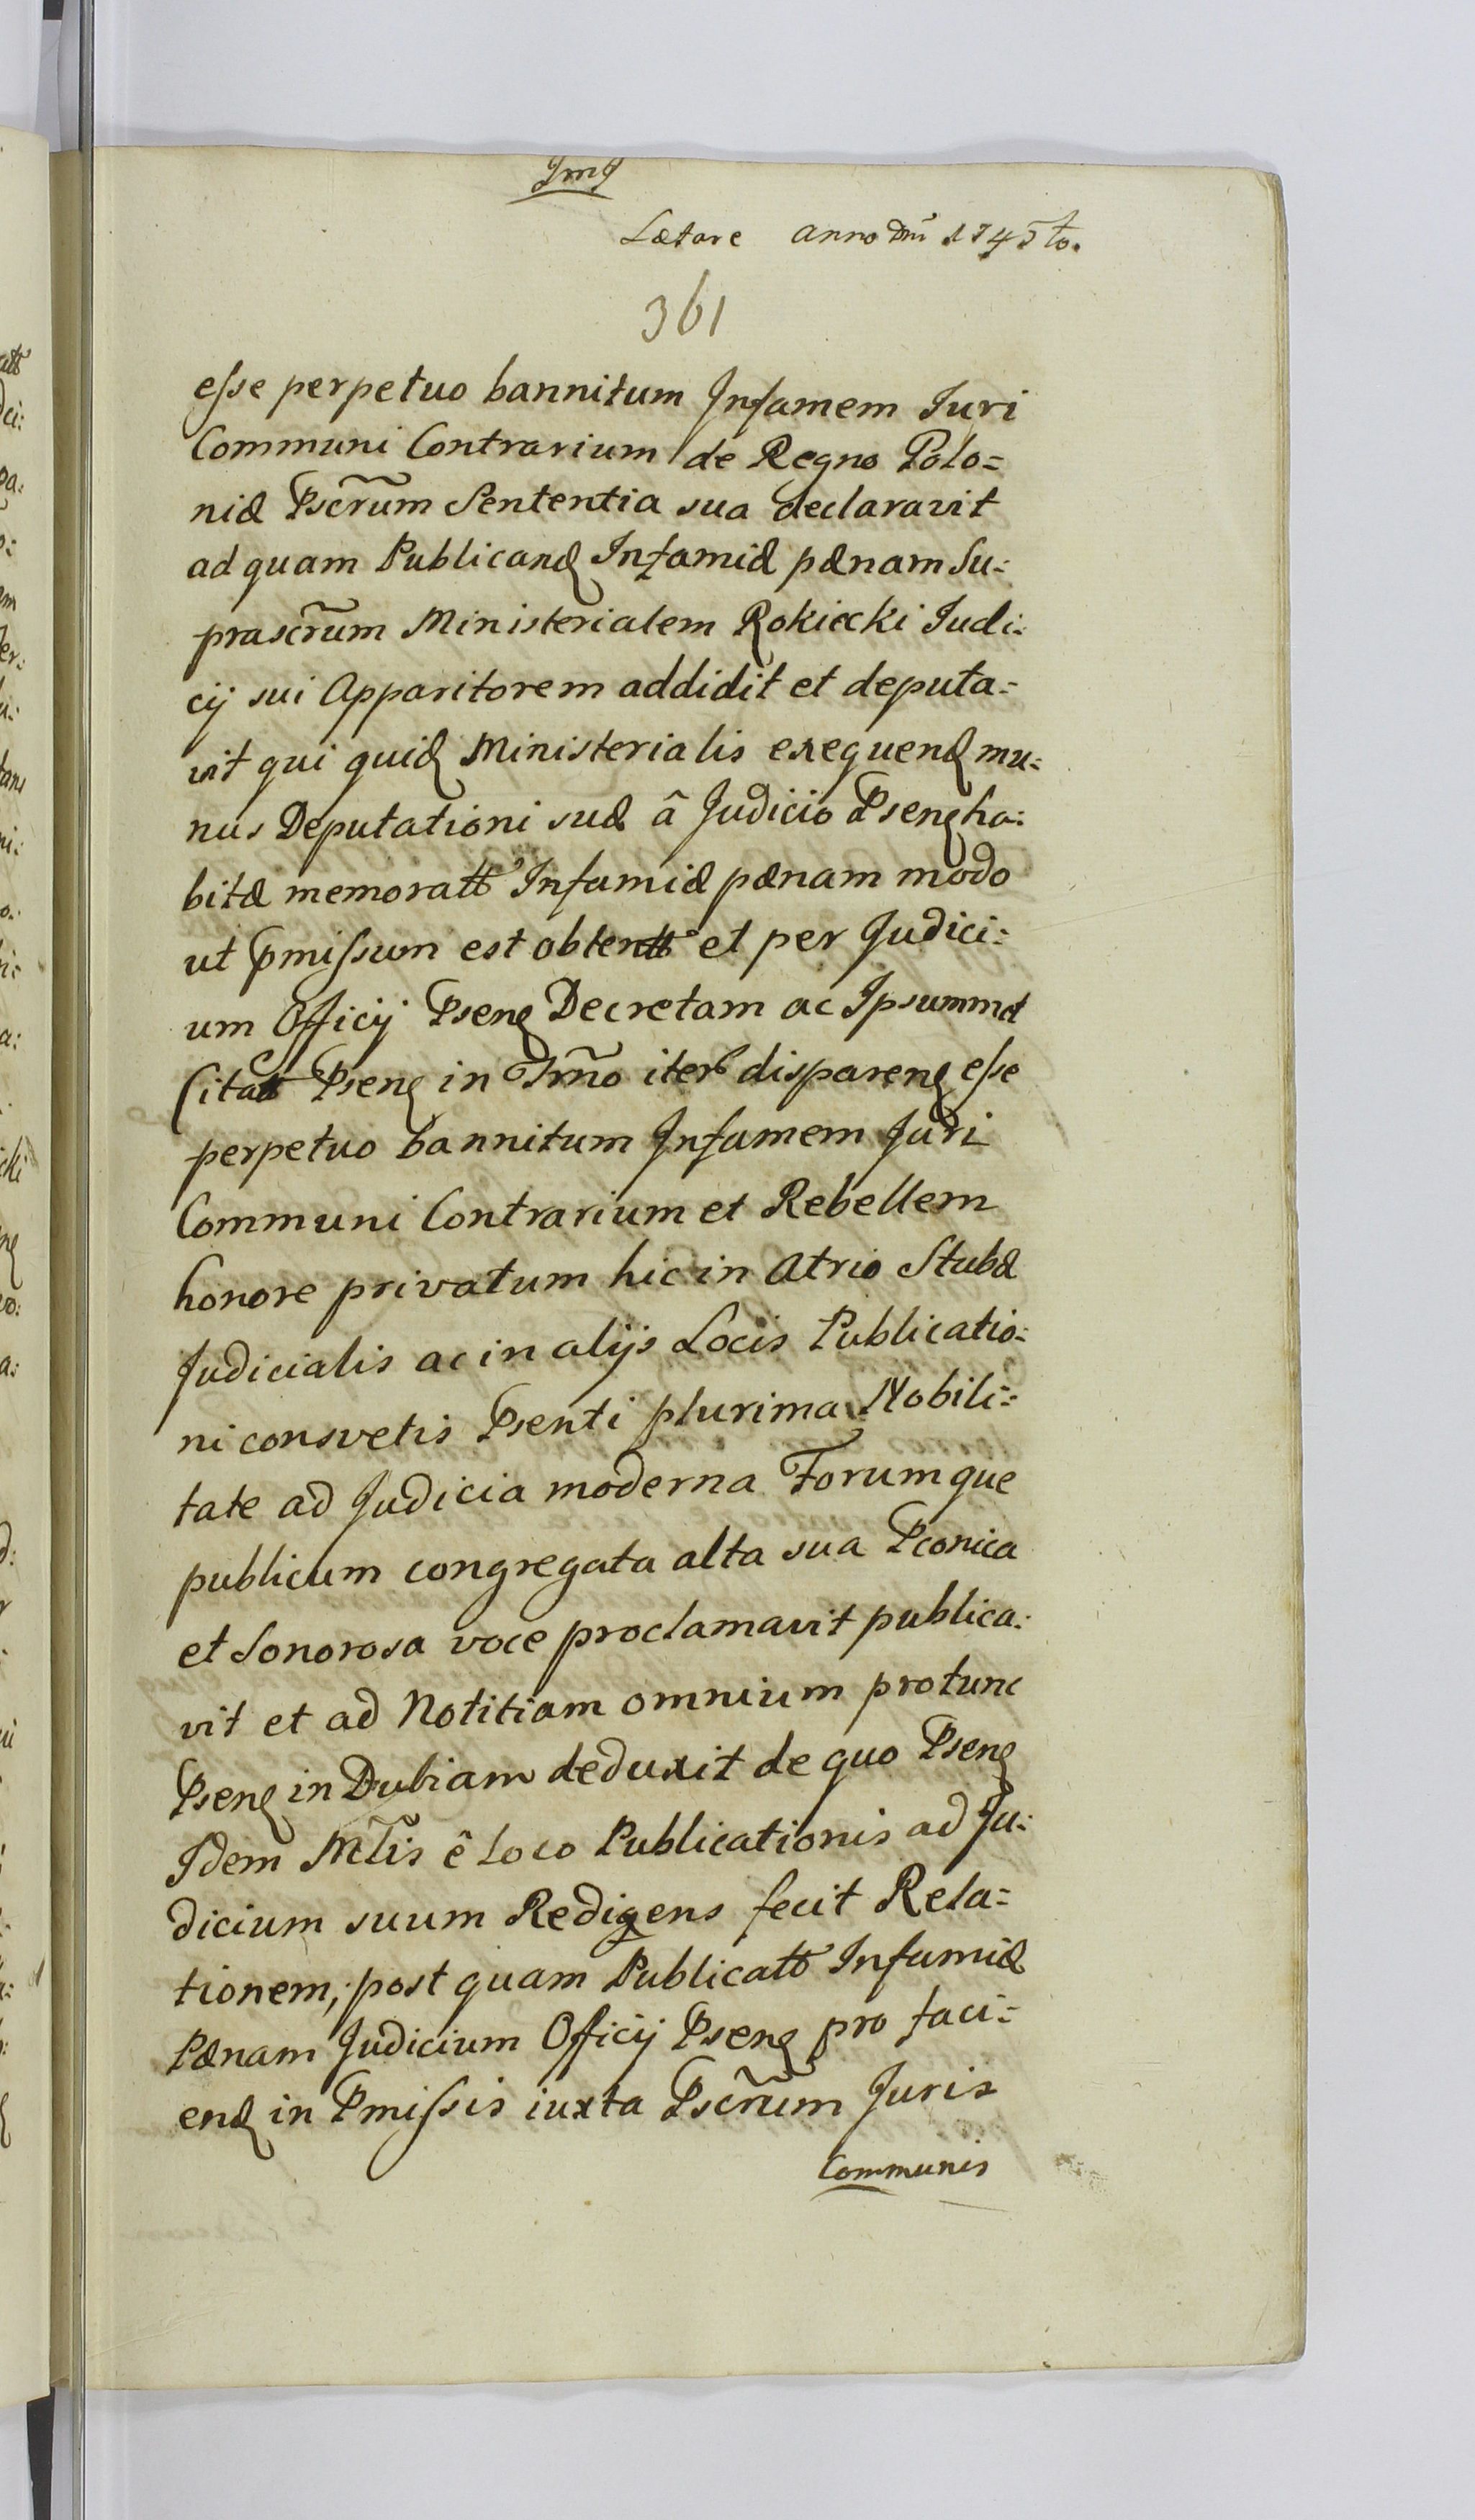 Lætare anno Dni 1745to.
361
esse perpetuo bannitum Infamem Iuri
Communi Contrarium de Regno Polo=
niæ Pscrũm Sententia sua declaravit
ad quam Publicand Infamiæ pænam Su=
prascrũm Ministerialem Rokiecki Iudi=
cij sui Apparitorem addidit et deputa=
vit qui quid Ministerialis exequend mu=
nus Deputationi suæ â Judicio Psen ha=
bitæ memoratt Infamiæ pænam modo
ut Pmissum est obtentt et per Judici=
um Officij Psen Decretam ac Ipsummet
Citatt Psen in Trmo iter disparen esse
perpetuo bannitum Infamem Juri
Communi Contrarium et Rebellem
honore privatum hic in Atrio Stubæ
Judicialis ac in alijs Locis Publicatio=
ni consvetis Psenti plurima Nobili=
tate ad Judicia moderna Forumque
publicum congregata alta sua Pconica
et Sonorosa voce proclamavit publica=
vit et ad Notitiam omnium protunc
Psen in Dubiam deduxit de quo Psen
Idem Mtlis ê Loco Publicationis ad Ju=
dicium suum Redigens fecit Rela=
tionem; post quam Publicatt Infamiæ
Pænam Judicium Officij Psen pro faci=
end in Pmissis iuxta Pscrũm Juris
Communis